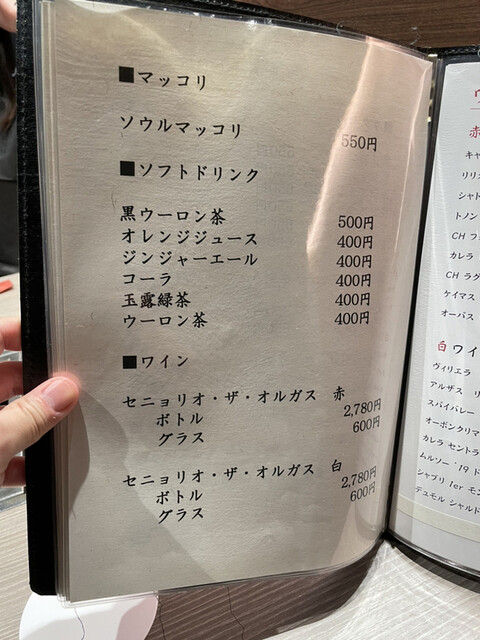 ■マッコリ
ソウルマッコリ 550円
■ソフトドリンク
黒ウーロン茶 500円
オレンジジュース 400円
ジンジャーエール 400円
コーラ 400円
玉露緑茶 400円
ウーロン茶 400円
■ワイン
セニョリオ・ザ・オルガス 赤
ボトル 2,780円
グラス 600円
セニョリオ・ザ・オルガス 白
ボトル 2,780円
グラス 600円
赤
キャ
リリ
シャト
トノン
CH フ
カレラ
CH ラグ
ケイマス
オーパス
白ワイ
ヴィリエラ
アルザス リ
スパイバレー
オーボンクリマ
カレラ セントラ
ムルソー '19 ド
シャブリ 1er モン
デュモル シャルド